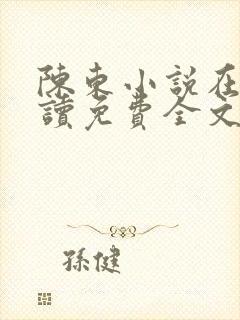 陳東小說在
讀免費全文
孫健